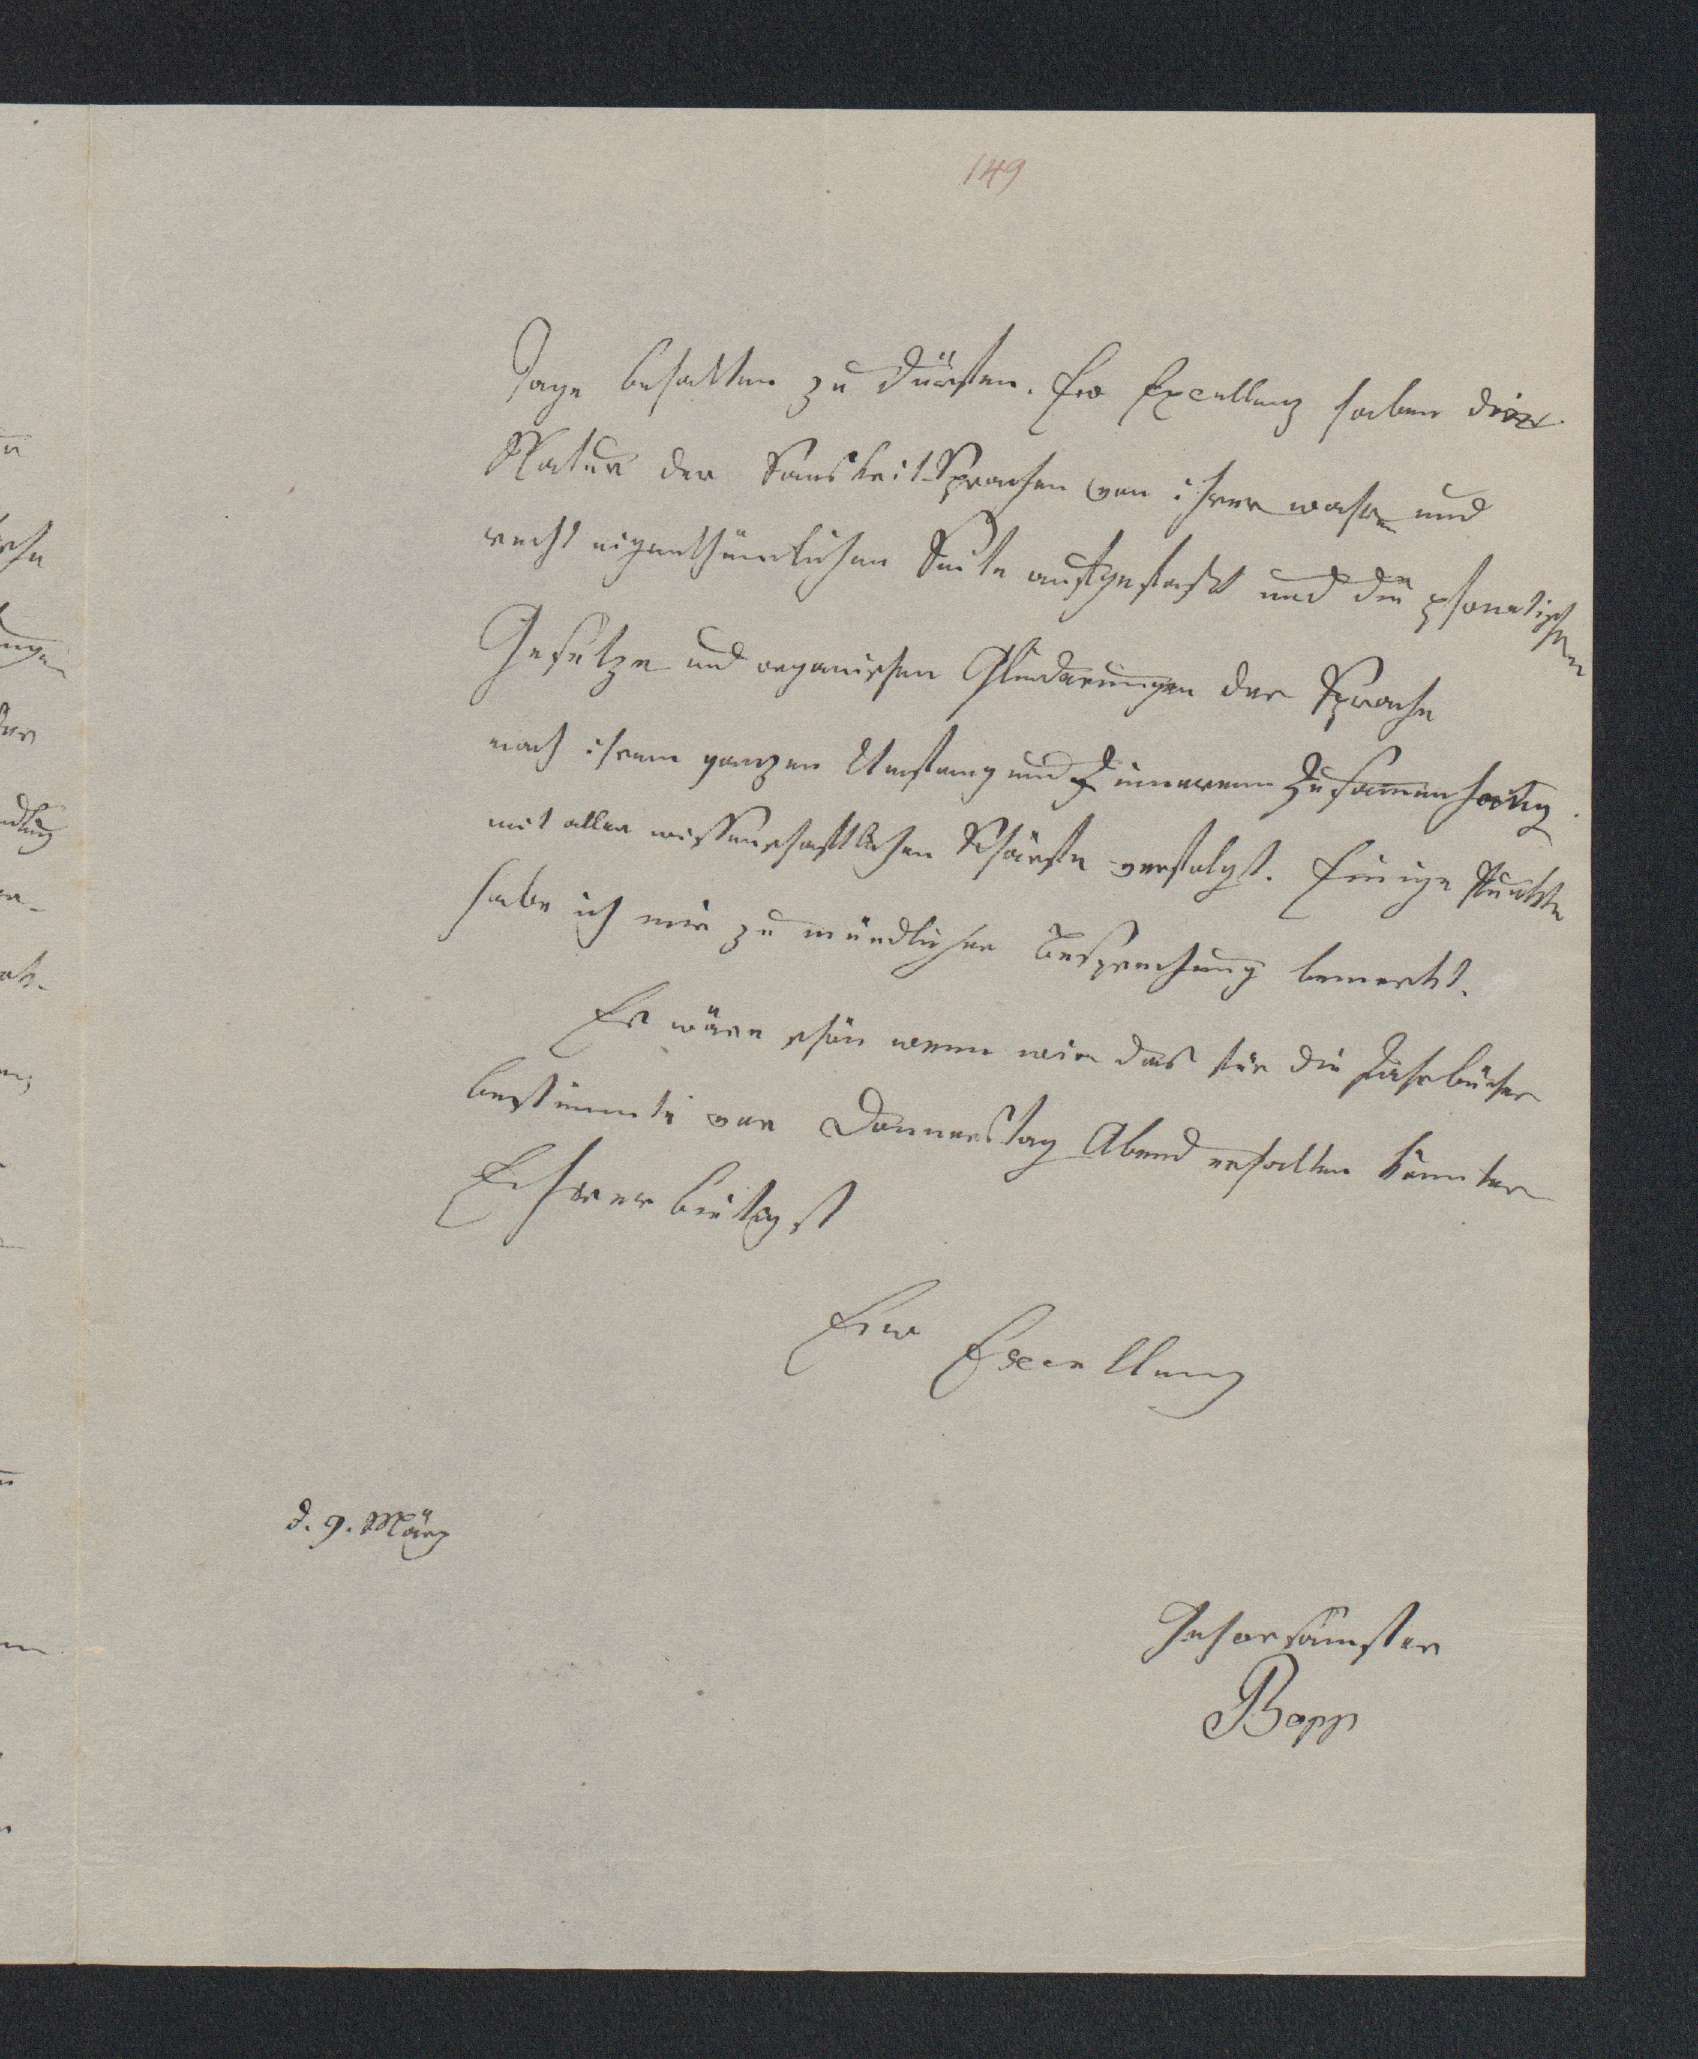 149
Tage behalten zu dürfen. Ew Excellenz haben die
Natur der Sanskrit-Sprachen von ihrer wahren und
recht eigenthümlichen Seite aufgefaßt und die phonetischen
Gesetze und organischen Gliederungen der Sprache
nach ihrem ganzen Umfang und inneren Zusammenhang
mit aller wissenschaftlichen Schärfe verfolgt. Einige Punkte
habe ich mir zu mündlicher Besprechung bemerkt.
Es wäre schön wenn wir das für die Jahrbücher
bestimmte vor Donnerstag Abend erhalten könnten
Ehrerbietigst
Ew Excellenz
d. 9. März
Gehorsamster
Bopp